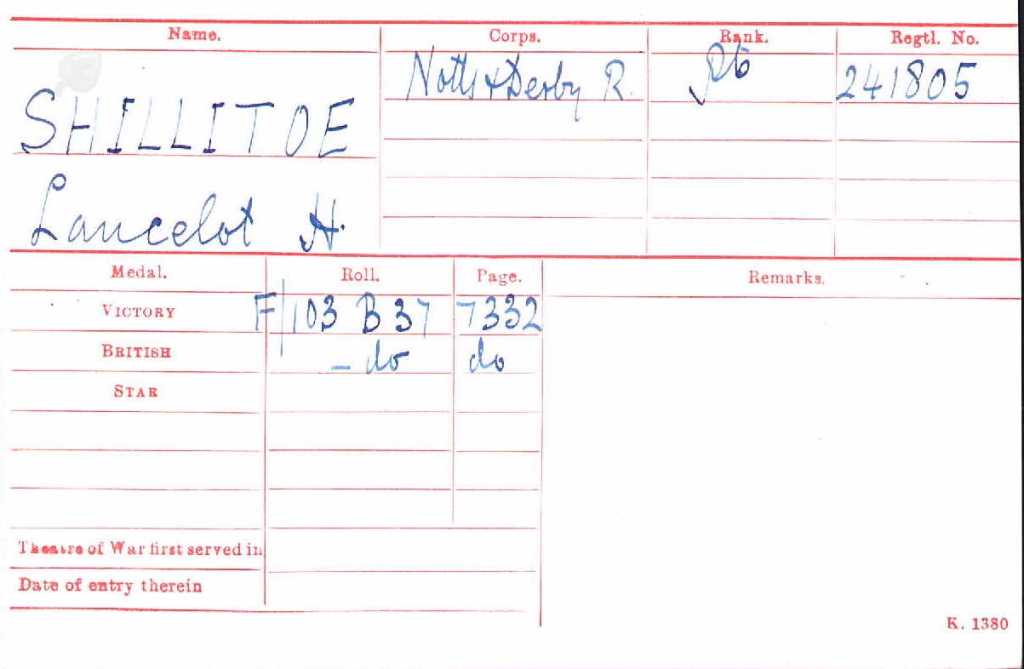 Name. Corps. Rank. Regtl. No.
SHILLITOE Notts & Derby R. Pte 241805
Lancelot H.
Medal. Roll. Page. Remarks.
VICTORY F/103 B37 7332
BRITISH – do do
STAR
Theatre of War first served in
Date of entry therein
K. 1380